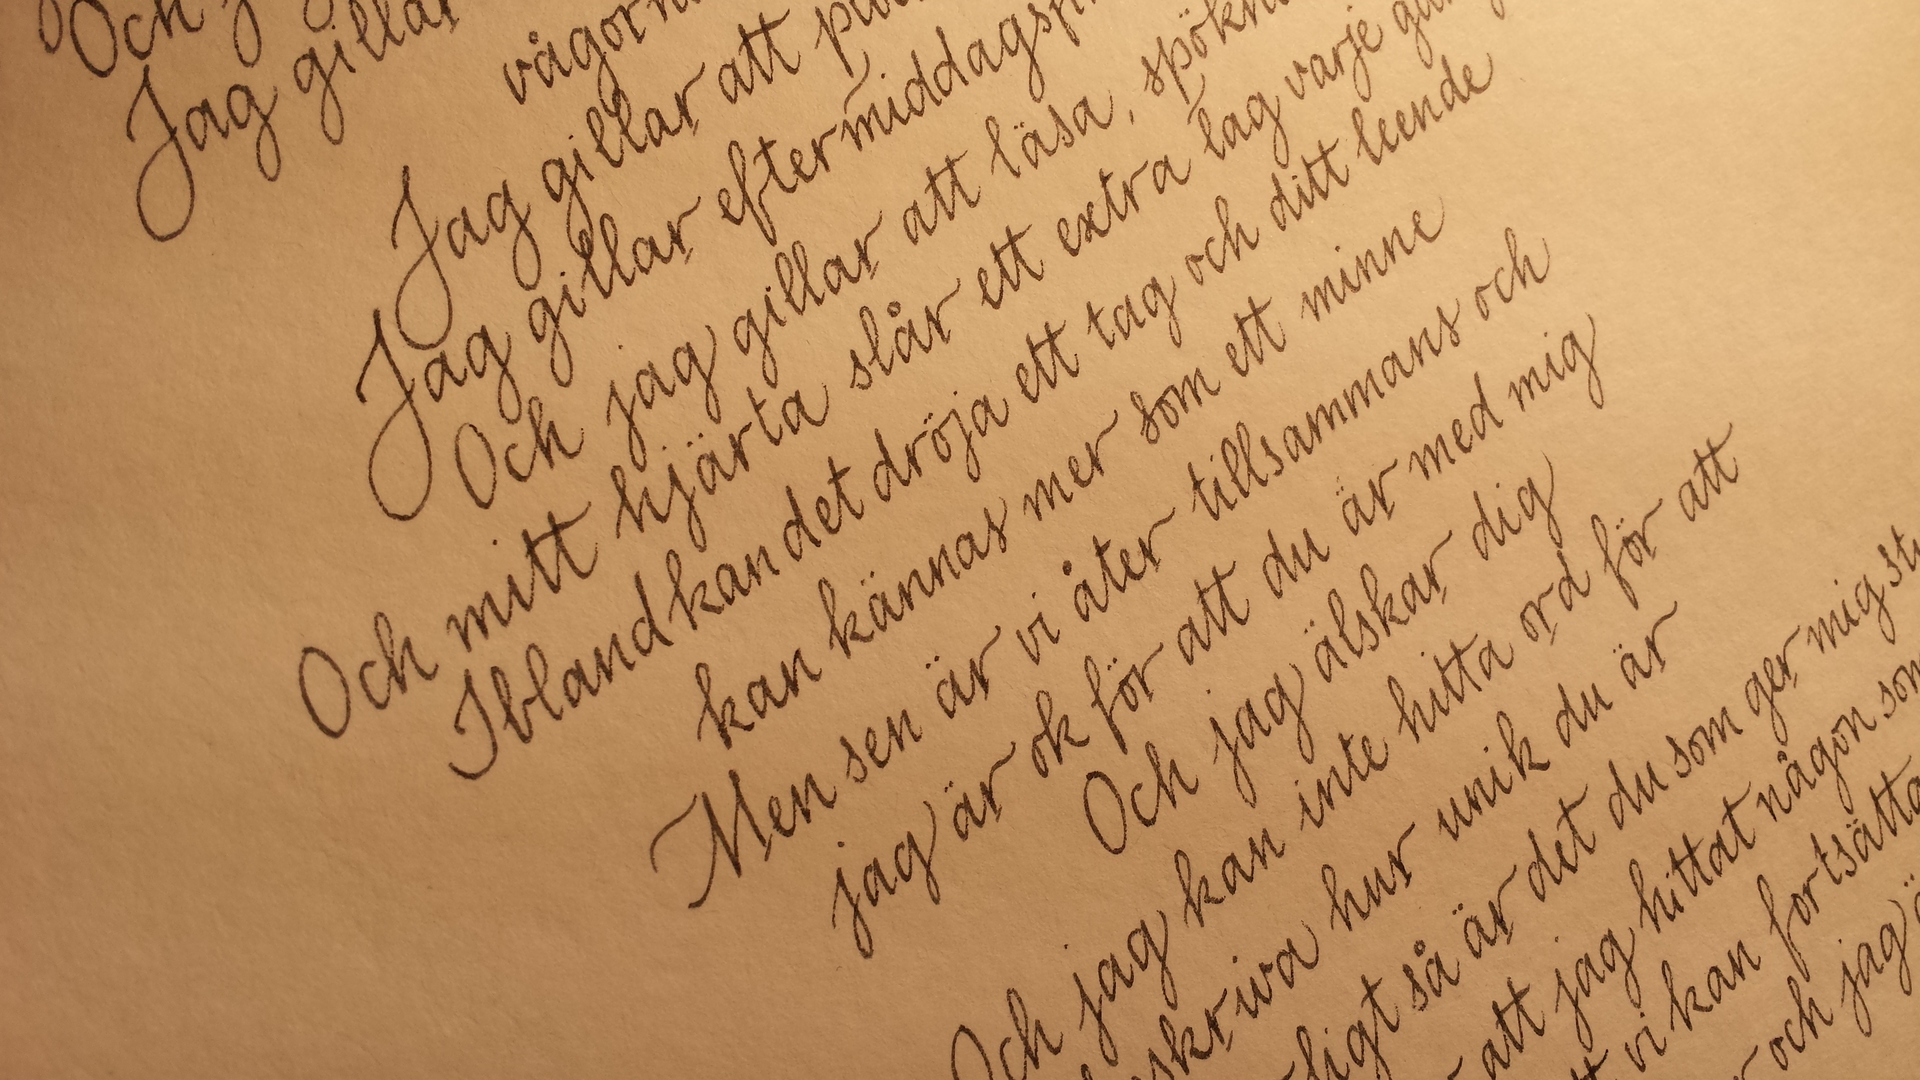 Och
Jag gillar
vågorna
Jag gillar att
Jag gillar eftermiddags
Och jag gillar att läsa, spök
Och mitt hjärta slår ett extra lag varje
Ibland kan det dröja ett tag och ditt leende
kan kännas mer som ett minne
Men sen är vi åter tillsammans och
jag är ok för att du är med mig
Och jag älskar dig
Och jag kan inte hitta ord för att
skriva hur unik du är
ligt så är det du som ger mig
att jag hittat någon som
vi kan fortsätta
och jag